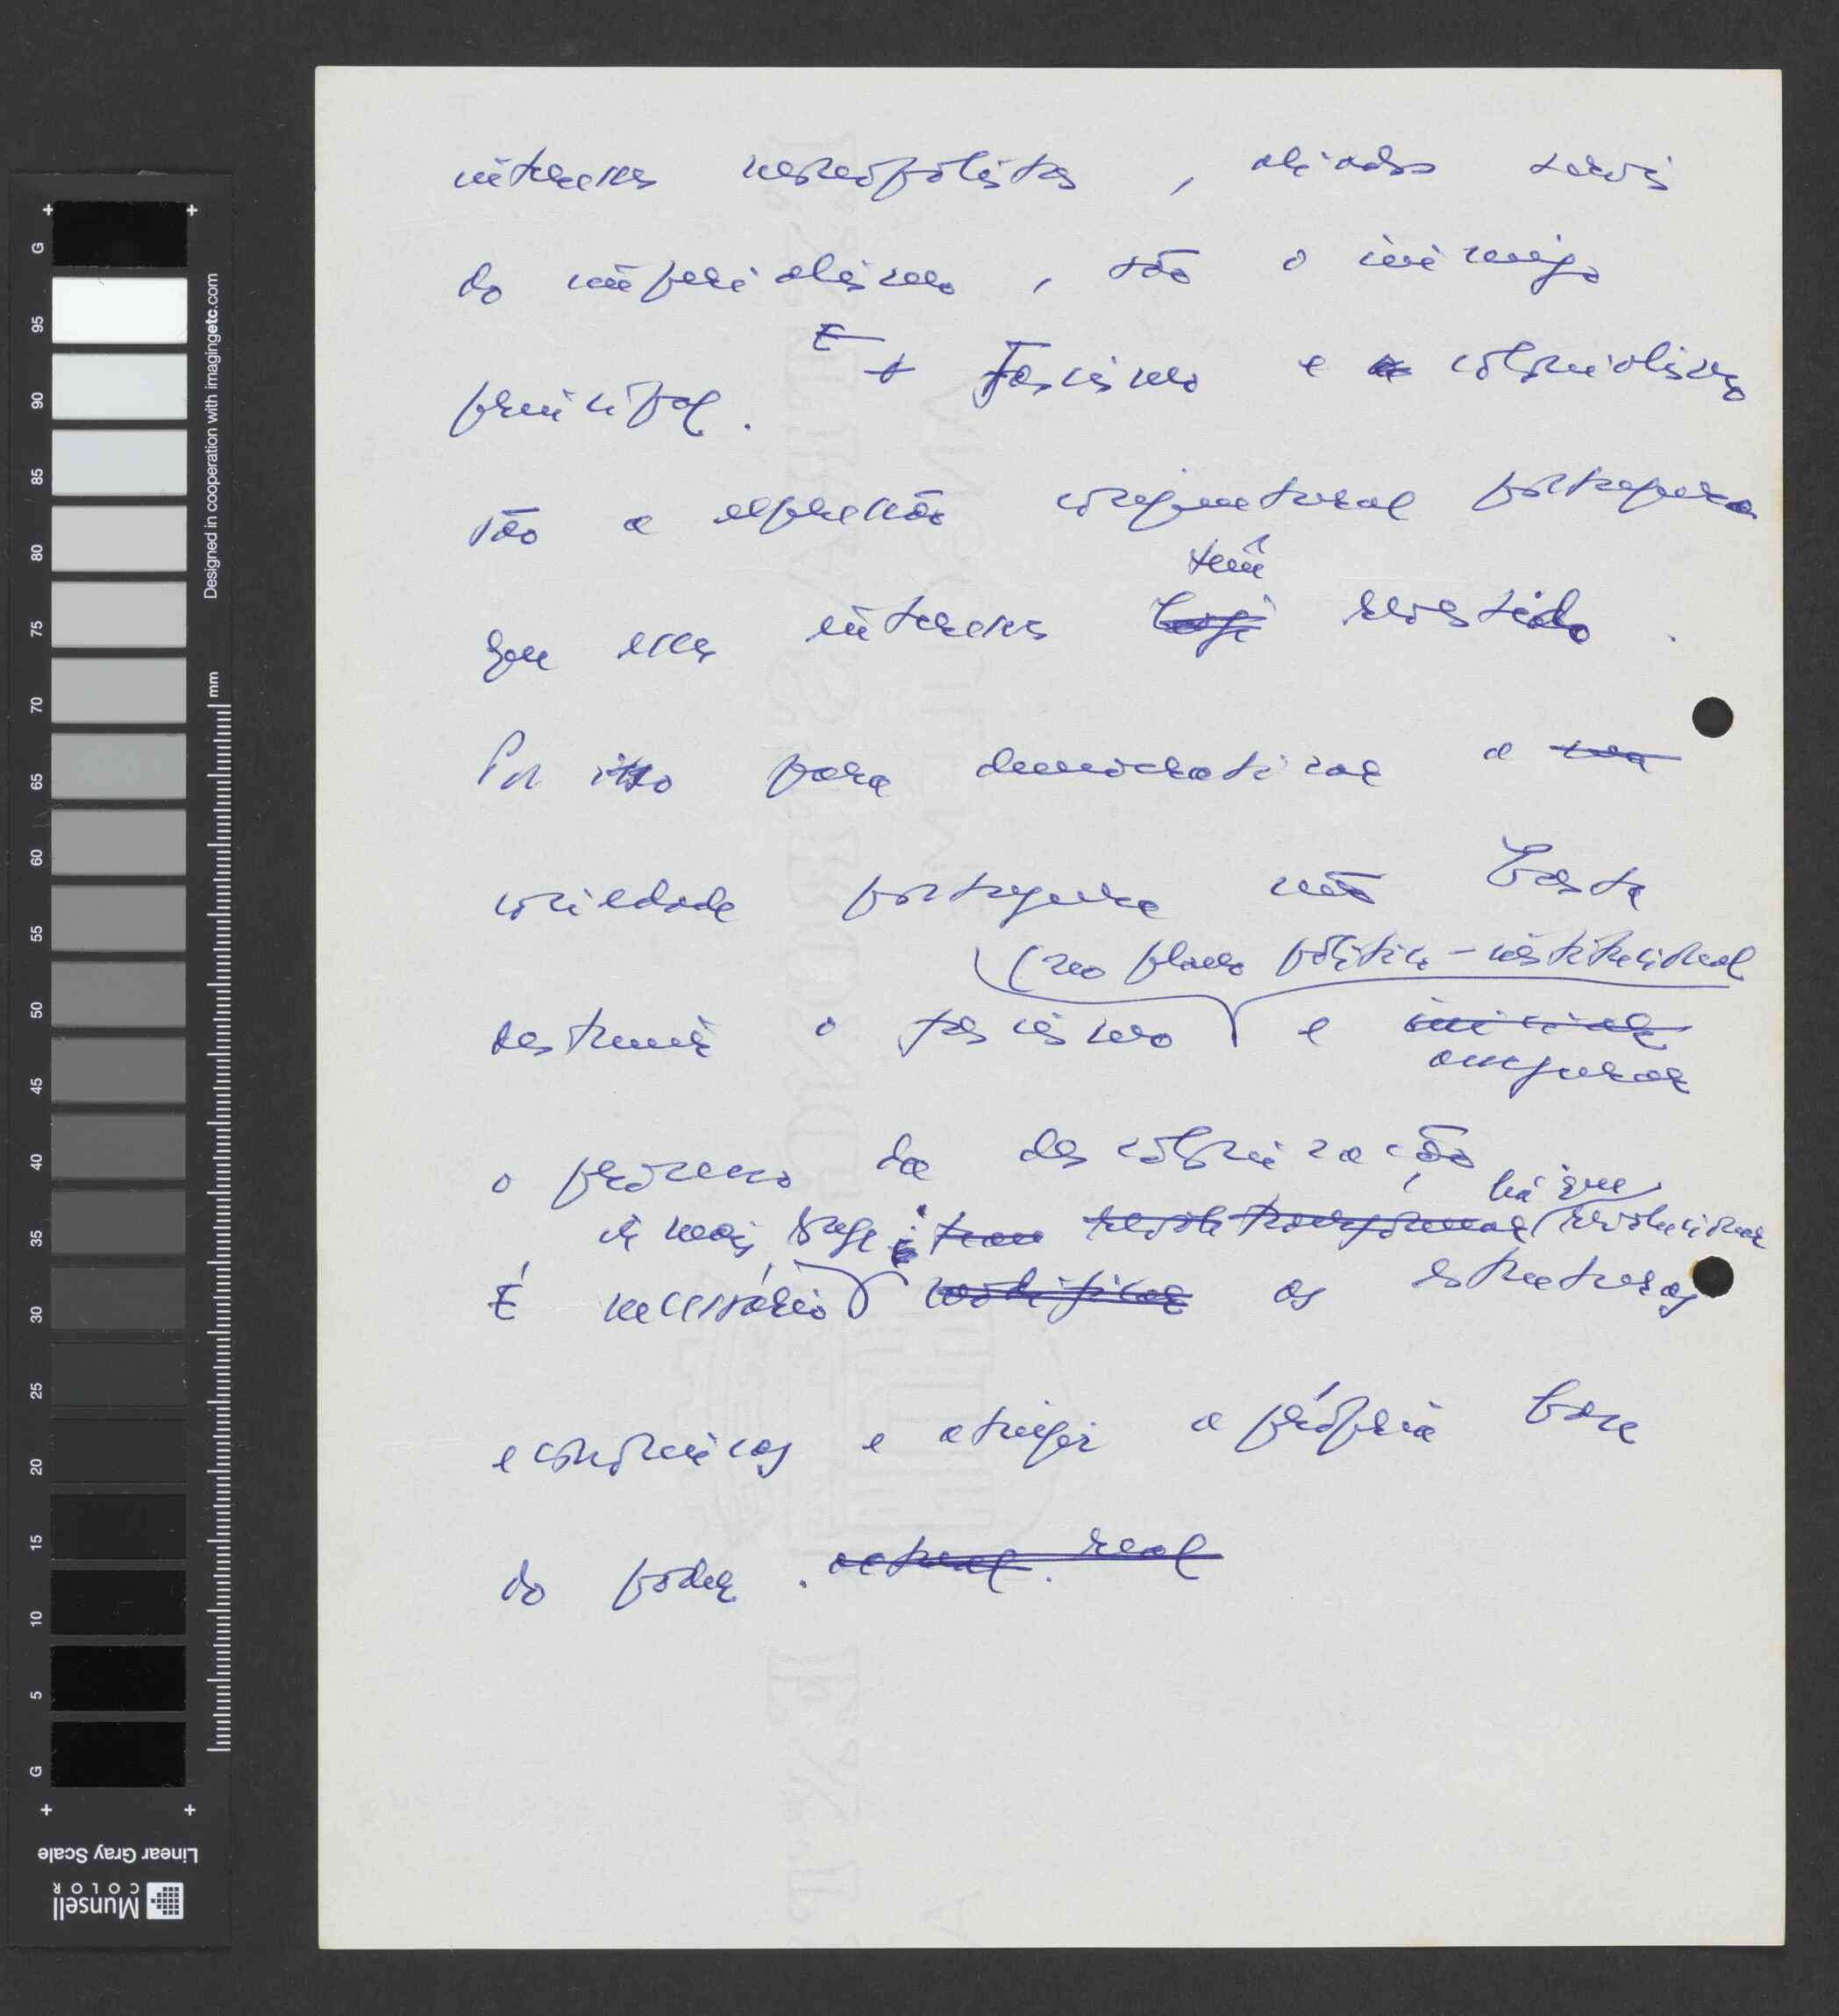 interesses monopolistas, aliados servis
do imperialismo, são o inimigo
principal. E Fascismo e colonialismo
são a expressão conjuntural portuguesa
têm
que esses interesses hoje revestido.
Por isso para democratizar a sua
sociedade portuguesa não basta
(no plano político-institucional
destruir o fascismo e iniciar
assegurar
o processo da descolonização,
há que
ir mais longe: revolucionar
É necessário modificar as estruturas
económicas e atingir a própria base
do poder. actual. real
G
95
90
85
80
75
70
65
60
55
50
45
40
35
30
25
20
15
10
5
G
Designed in cooperation with imagingetc.com
mm
Linear Gray Scale
Munsell
COLOR